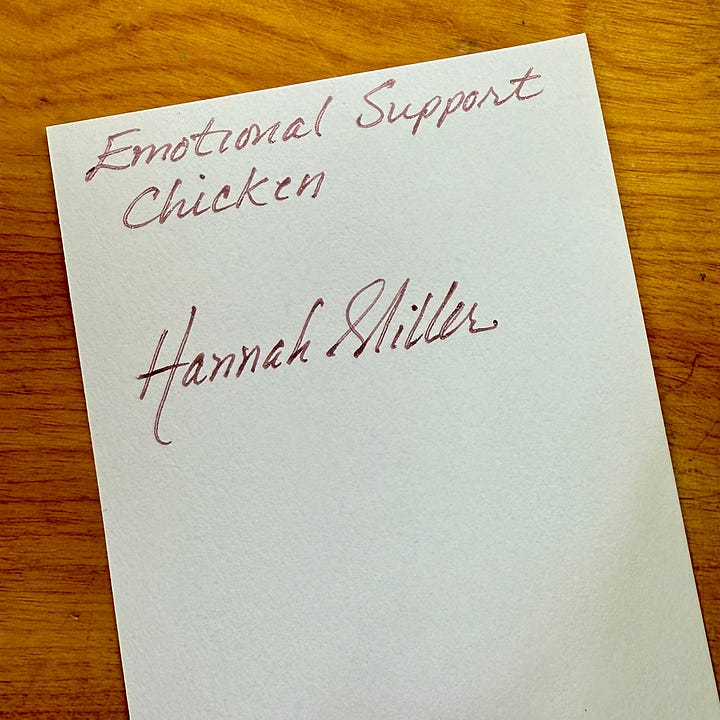 Emotional Support
Chicken
Hannah Miller